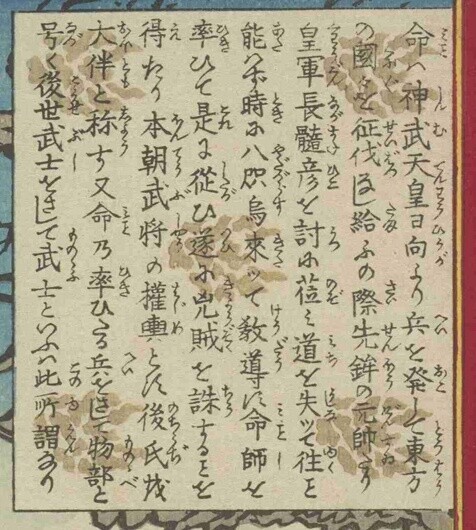 命ハ神武天皇日向より兵を発して東方
の國を征伐なし給ふの際先鉾の元帥たり
皇軍長髓彦を討に莅み道を失ツて往を
能はず時に八咫烏來ツて教導す命師を
率ひて是に從ひ遂に兇賊を誅するを
得たり本朝武将の權輿とす後氏を
大伴と称す又命乃率ひたる兵をさして物部と
号く後世武士をさして武士といふハ此所謂なり